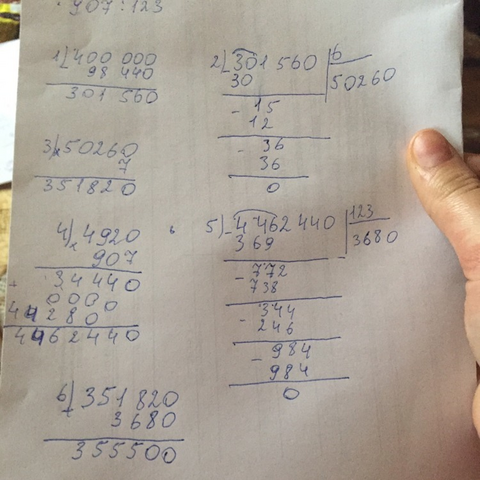 907:123
1) 400 000
98 440
301 560
2) 301 560 6
30 50260
- 15
12
- 36
36
0
3) x 50260
7
351820
4) x 4920
907
+ 34440
0000
44280
4462440
5) - 4462440 123
369 3680
- 772
738
- 344
246
- 984
984
0
6) + 351820
3680
355500